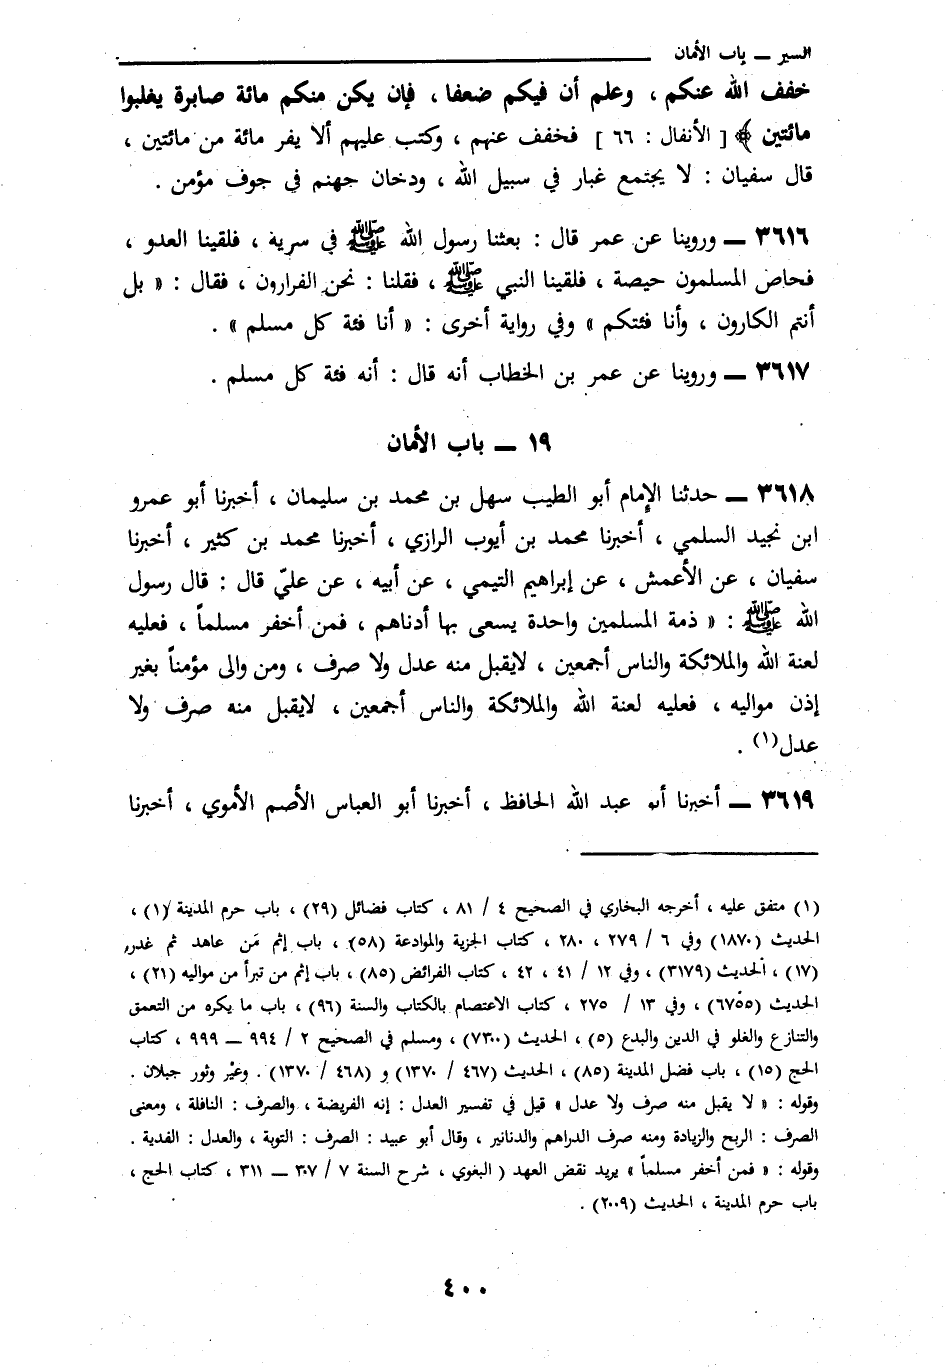 السير ــ باب الأمان
خفف الله عنكم ، وعلم أن فيكم ضعفا ، فإن يكن منكم مائة صابرة يغلبوا
مائتين ﴾ [ الأنفال : ٦٦ ] فخفف عنهم ، وكتب عليهم ألا يفر مائة من مائتين ،
قال سفيان : لا يجتمع غبار في سبيل الله ، ودخان جهنم في جوف مؤمن .
٣٦١٦ ــ وروينا عن عمر قال : بعثنا رسول الله ﷺ في سرية ، فلقينا العدو ،
فحاص المسلمون حيصة ، فلقينا النبي ﷺ ، فقلنا : نحن الفرارون ، فقال : « بل
أنتم الكارون ، وأنا فئتكم » وفي رواية أخرى : « أنا فئة كل مسلم » .
٣٦١٧ ــ وروينا عن عمر بن الخطاب أنه قال : أنه فئة كل مسلم .
١٩ ــ باب الأمان
٣٦١٨ ــ حدثنا الإمام أبو الطيب سهل بن محمد بن سليمان ، أخبرنا أبو عمرو
ابن نجيد السلمي ، أخبرنا محمد بن أيوب الرازي ، أخبرنا محمد بن كثير ، أخبرنا
سفيان ، عن الأعمش ، عن إبراهيم التيمي ، عن أبيه ، عن عليّ قال : قال رسول
الله ﷺ : « ذمة المسلمين واحدة يسعى بها أدناهم ، فمن أخفر مسلماً ، فعليه
لعنة الله والملائكة والناس أجمعين ، لايقبل منه عدل ولا صرف ، ومن والى مؤمناً بغير
إذن مواليه ، فعليه لعنة الله والملائكة والناس أجمعين ، لايقبل منه صرف ولا
عدل(١) .
٣٦١٩ ــ أخبرنا أبو عبد الله الحافظ ، أخبرنا أبو العباس الأصم الأموي ، أخبرنا
(١) متفق عليه ، أخرجه البخاري في الصحيح ٤ / ٨١ ، كتاب فضائل (٢٩) ، باب حرم المدينة (١) ،
الحديث (١٨٧٠) وفي ٦ / ٢٧٩ ، ٢٨٠ ، كتاب الجزية والموادعة (٥٨) ، باب إثم مَن عاهد ثم غدر
(١٧) ، الحديث (٣١٧٩) ، وفي ١٢ / ٤١ ، ٤٢ ، كتاب الفرائض (٨٥) ، باب إثم من تبرأ من مواليه (٢١) ،
الحديث (٦٧٥٥) ، وفي ١٣ / ٢٧٥ ، كتاب الاعتصام بالكتاب والسنة (٩٦) ، باب ما يكره من التعمق
والتنازع والغلو في الدين والبدع (٥) ، الحديث (٧٣٠٠) ، ومسلم في الصحيح ٢ / ٩٩٤ ــ ٩٩٩ ، كتاب
الحج (١٥) ، باب فضل المدينة (٨٥) ، الحديث (٤٦٧ / ١٣٧٠) و (٤٦٨ / ١٣٧٠) . وعيْر وثور جبلان .
وقوله : « لا يقبل منه صرف ولا عدل » قيل في تفسير العدل : إنه الفريضة ، والصرف : النافلة ، ومعنى
الصرف : الربح والزيادة ومنه صرف الدراهم والدنانير ، وقال أبو عبيد : الصرف : التوبة ، والعدل : الفدية .
وقوله : « فمن أخفر مسلماً » يريد نقض العهد ( البغوي ، شرح السنة ٧ / ٣٠٧ ــ ٣١١ ، كتاب الحج ،
باب حرم المدينة ، الحديث (٢٠٠٩) .
٤٠٠